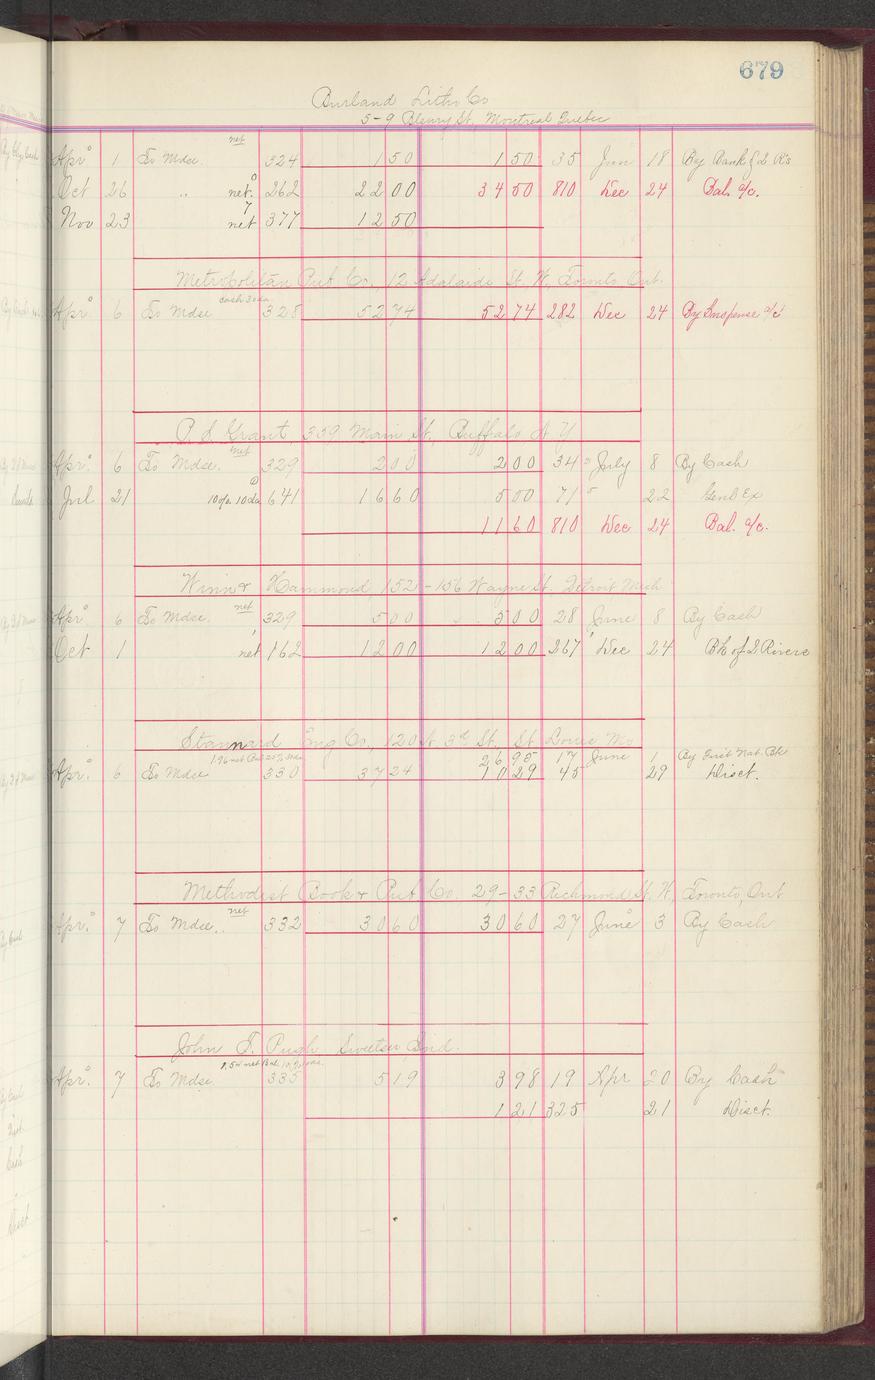 679
Burland Litho Co
5-9 Bleury St, Montreal Quebec
Apr 1 To Mdse. net 324 1 50 1 50 35 Jun 18 By Bank of 2 R's
Oct 26 " net 262 22 00 34 50 810 Dec 24 Bal. a/c.
Nov 23 net 377 12 50
Metropolitan Pub Co., 12 Adelaide St. W, Toronto Ont.
Apr 6 To Mdse cash 30da 328 52 74 52 74 282 Dec 24 By Suspense a/c
P. S. Grant 359 Main St., Buffalo N Y
Apr. 6 To Mdse. net 329 2 00 2 00 34 July 8 By Cash
Jul 21 10% 10da 641 16 60 5 00 71 22 Genl Ex
11 60 810 Dec 24 Bal. a/c.
Winn & Hammond 152-156 Wayne St. Detroit Mich
Apr 6 To Mdse. net 329 5 00 5 00 28 June 8 By Cash
Oct 1 net 162 12 00 12 00 267 Dec 24 Bk of 2 Rivers
Stannard Eng Co., 120 N. 3rd St., St Louis Mo
26 95 17 June 1 By Nat. Bk
Apr. 6 To Mdse 330 37 24 10 29 45 29 Disct.
Methodist Book & Pub Co. 29-33 Richmond St. W, Toronto, Ont
Apr. 7 To Mdse.. net 332 30 60 30 60 27 June 3 By Cash
John T. Pugh Sweetser Ind.
Apr. 7 To Mdse 335 5 19 3 98 19 Apr 20 By Cash
1 21 325 21 Disct.